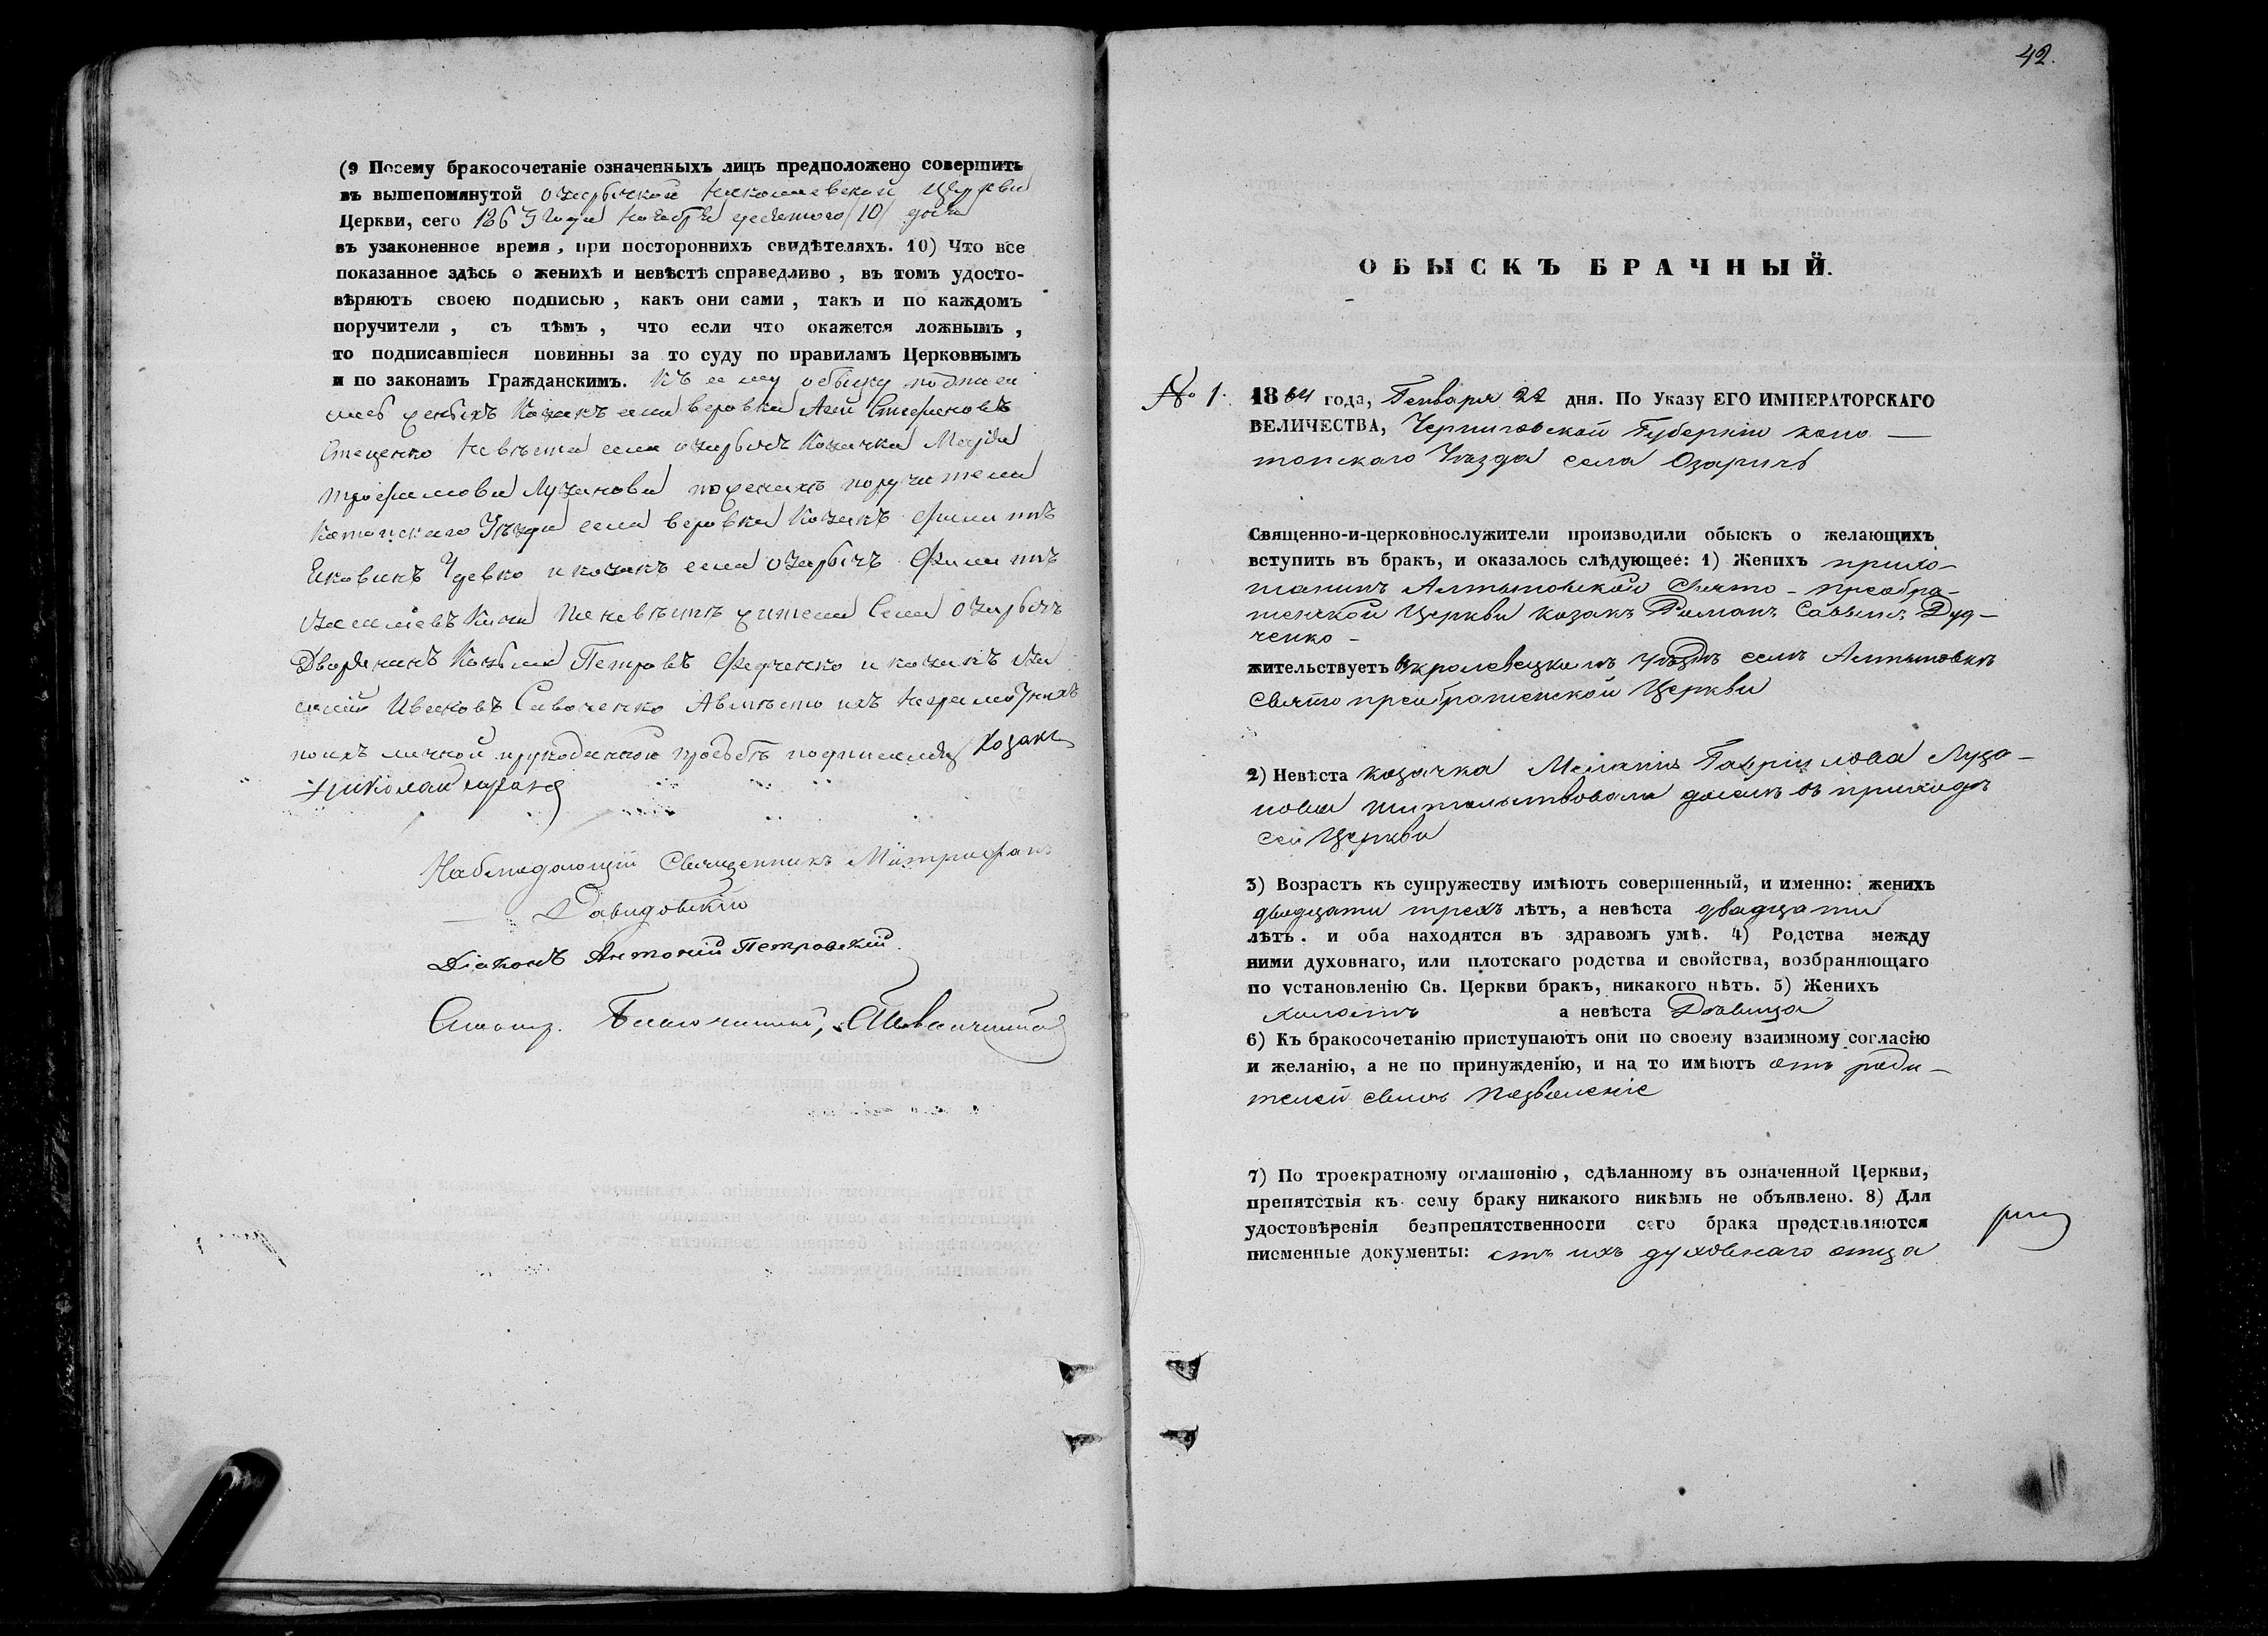 (9 Посему бракосочетаніе означенныхъ лицъ предположено совершить
въ вышепомянутой Озарыческой Николаевской Церкви
Церкви, сего 1863 года Ноября десятого /10/ дня
въ узаконенное время, при постороннихъ свидѣтеляхъ. 10) Что все
показанное здѣсь о женихѣ и невѣстѣ справедливо, въ томъ удосто-
вѣряютъ своею подписью, какъ они сами, такъ и по каждомъ
поручители, съ тѣмъ, что если что окажется ложнымъ,
то подписавшіеся повинны за то суду по правиламъ Церковнымъ
и по законамъ Гражданскимъ. Къ сему обыску подписа
лись женихъ Козакъ села Веровки Стефановъ
Стеценко Невѣста села Озарычъ Козачка
Трофимова Лузанова по женихѣ поручители
Уѣзда села Веровки Козакъ Филипъ
и козакъ села Озарычъ Филипъ
Васильевъ По невѣстѣ жители Села Озарычъ
Дворянинъ Козьма Петровъ Федченко и козакъ Ва
силій Ивановъ Савоченко А вмѣсто ихъ неграмотныхъ
по ихъ личной и рукоданной прозьбѣ подписался Козакъ
Николай
Наблюдающій Священникъ Митрофанъ
Давидовскій
Діаконъ Антоній Петровскій
42.
ОБЫСКЪ БРАЧНЫЙ.
№ 1. 1864 года, Генваря 22 дня. По Указу ЕГО ИМПЕРАТОРСКАГО
ВЕЛИЧЕСТВА, Черниговской Губерніи коно —
топскаго Уѣзда села Озаричъ
Священно-и-церковнослужители производили обыскъ о желающихъ
вступить въ брак, и оказалось слѣдующее: 1) Женихъ прихо-
жанинъ Алтыновской Свято - преобра-
женской Церкви козакъ Романъ Саввинъ Дуд-
ченко -
жительствуетъ Вкролевецкомъ уѣздѣ селѣ Алтыновкѣ
Свято преображенской Церкви
2) Невѣста козачка Меланія Гавріилова Луза -
нова жительствовала доселѣ въ приходѣ
сей Церкви
3) Возрастъ къ супружеству имѣютъ совершенный, и именно: женихъ
двадцати трехъ лѣтъ, а невѣста двадцати
лѣтъ. и оба находятся въ здравомъ умѣ. 4) Родства между
ними духовнаго, или плотскаго родства и свойства, возбраняющаго
по установленію Св. Церкви бракъ, никакого нѣтъ. 5) Женихъ
холостъ а невѣста Дѣвица
6) Къ бракосочетанію приступаютъ они по своему взаимному согласію
и желанію, а не по принужденію, и на то имѣютъ отъ роди -
телей своихъ позволеніе
7) По троекратному оглашенію, сдѣланному въ означенной Церкви,
препятствія къ сему браку никакого никѣмъ не объявлено. 8) Для
удостовѣренія безпрепятственности сего брака представляются
писменные документы: отъ ихъ духовнаго отца